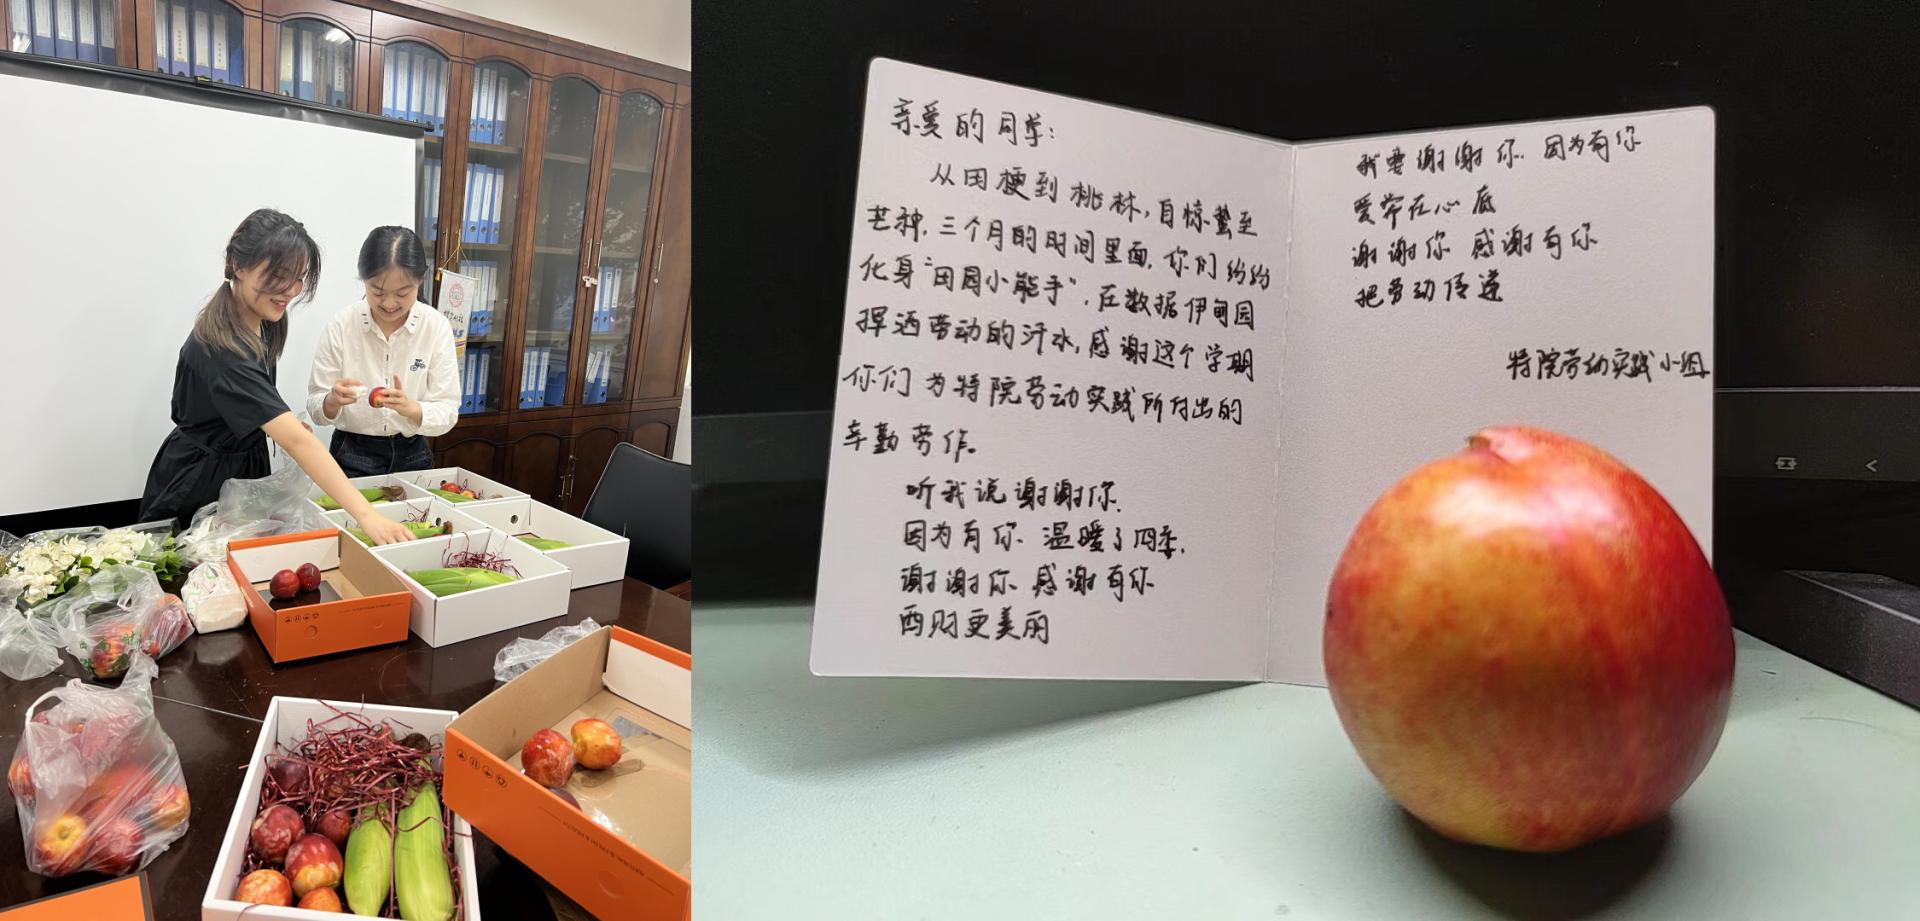 亲爱的同学:
从田梗到桃林,自惊蛰至
芒种,三个月的时间里面,你们纷纷
化身“田园小能手”,在数据伊甸园
挥洒劳动的汗水,感谢这个学期
你们为特院劳动实践所付出的
辛勤劳作。
听我说谢谢你,
因为有你 温暖了四季,
谢谢你 感谢有你
西财更美丽
我要谢谢你 因为有你
爱常在心底
谢谢你 感谢有你
把劳动传递
特院劳动实践小组